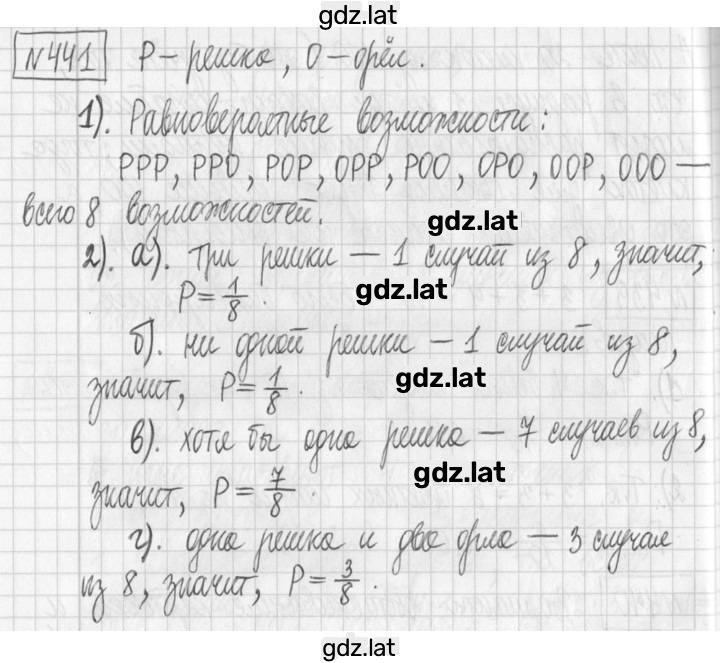 gdz.lat
№441 Р – решка, О – орёл.
1). Равновероятные возможности:
РРР, РРО, РОР, ОРР, РОО, ОРО, ООР, ООО —
всего 8 возможностей.
gdz.lat
2). а). три решки – 1 случай из 8, значит,
Р = 1/8.
gdz.lat
б). ни одной решки – 1 случай из 8,
значит, Р = 1/8.
gdz.lat
в). хотя бы одна решка – 7 случаев из 8,
значит, Р = 7/8.
gdz.lat
г). одна решка и два орла – 3 случая
из 8, значит, Р = 3/8.
gdz.lat